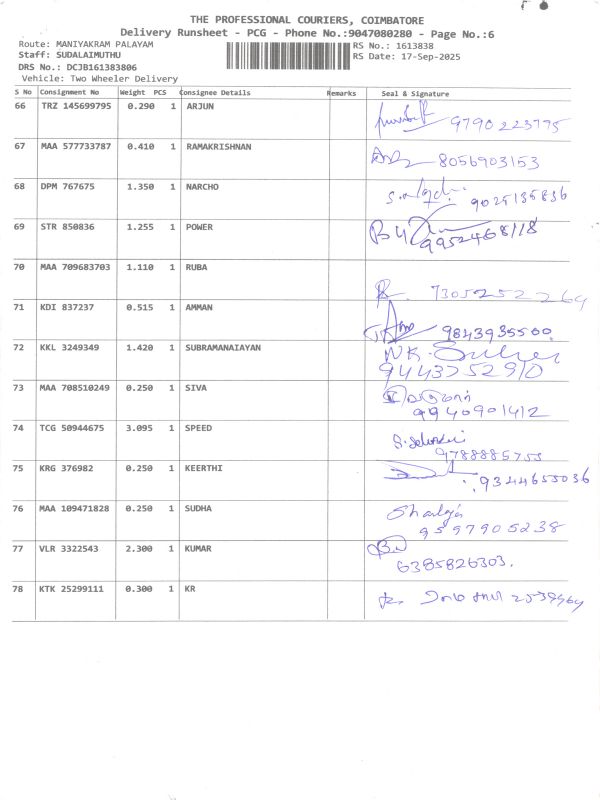 THE PROFESSIONAL COURIERS, COIMBATORE
Delivery Runsheet - PCG - Phone No.:9047080280 - Page No.:6
Route: MANIYAKRAM PALAYAM
RS No.: 1613838
Staff: SUDALAIMUTHU
RS Date: 17-Sep-2025
DRS No.: DCJB161383806
Vehicle: Two Wheeler Delivery
S No Consignment No Weight PCS Consignee Details Remarks Seal & Signature
66 TRZ 145699795 0.290 1 ARJUN
9790223775
67 MAA 577733787 0.410 1 RAMAKRISHNAN
8056903153
68 DPM 767675 1.350 1 NARCHO
9025135836
69 STR 850836 1.255 1 POWER
9952468118
70 MAA 709683703 1.110 1 RUBA
7305252264
71 KDI 837237 0.515 1 AMMAN
9843935500
72 KKL 3249349 1.420 1 SUBRAMANAIAYAN
9443752910
73 MAA 708510249 0.250 1 SIVA
9940901412
74 TCG 50944675 3.095 1 SPEED
9788885755
75 KRG 376982 0.250 1 KEERTHI
9344655036
76 MAA 109471828 0.250 1 SUDHA
9597905238
77 VLR 3322543 2.300 1 KUMAR
6385826303.
78 KTK 25299111 0.300 1 KR